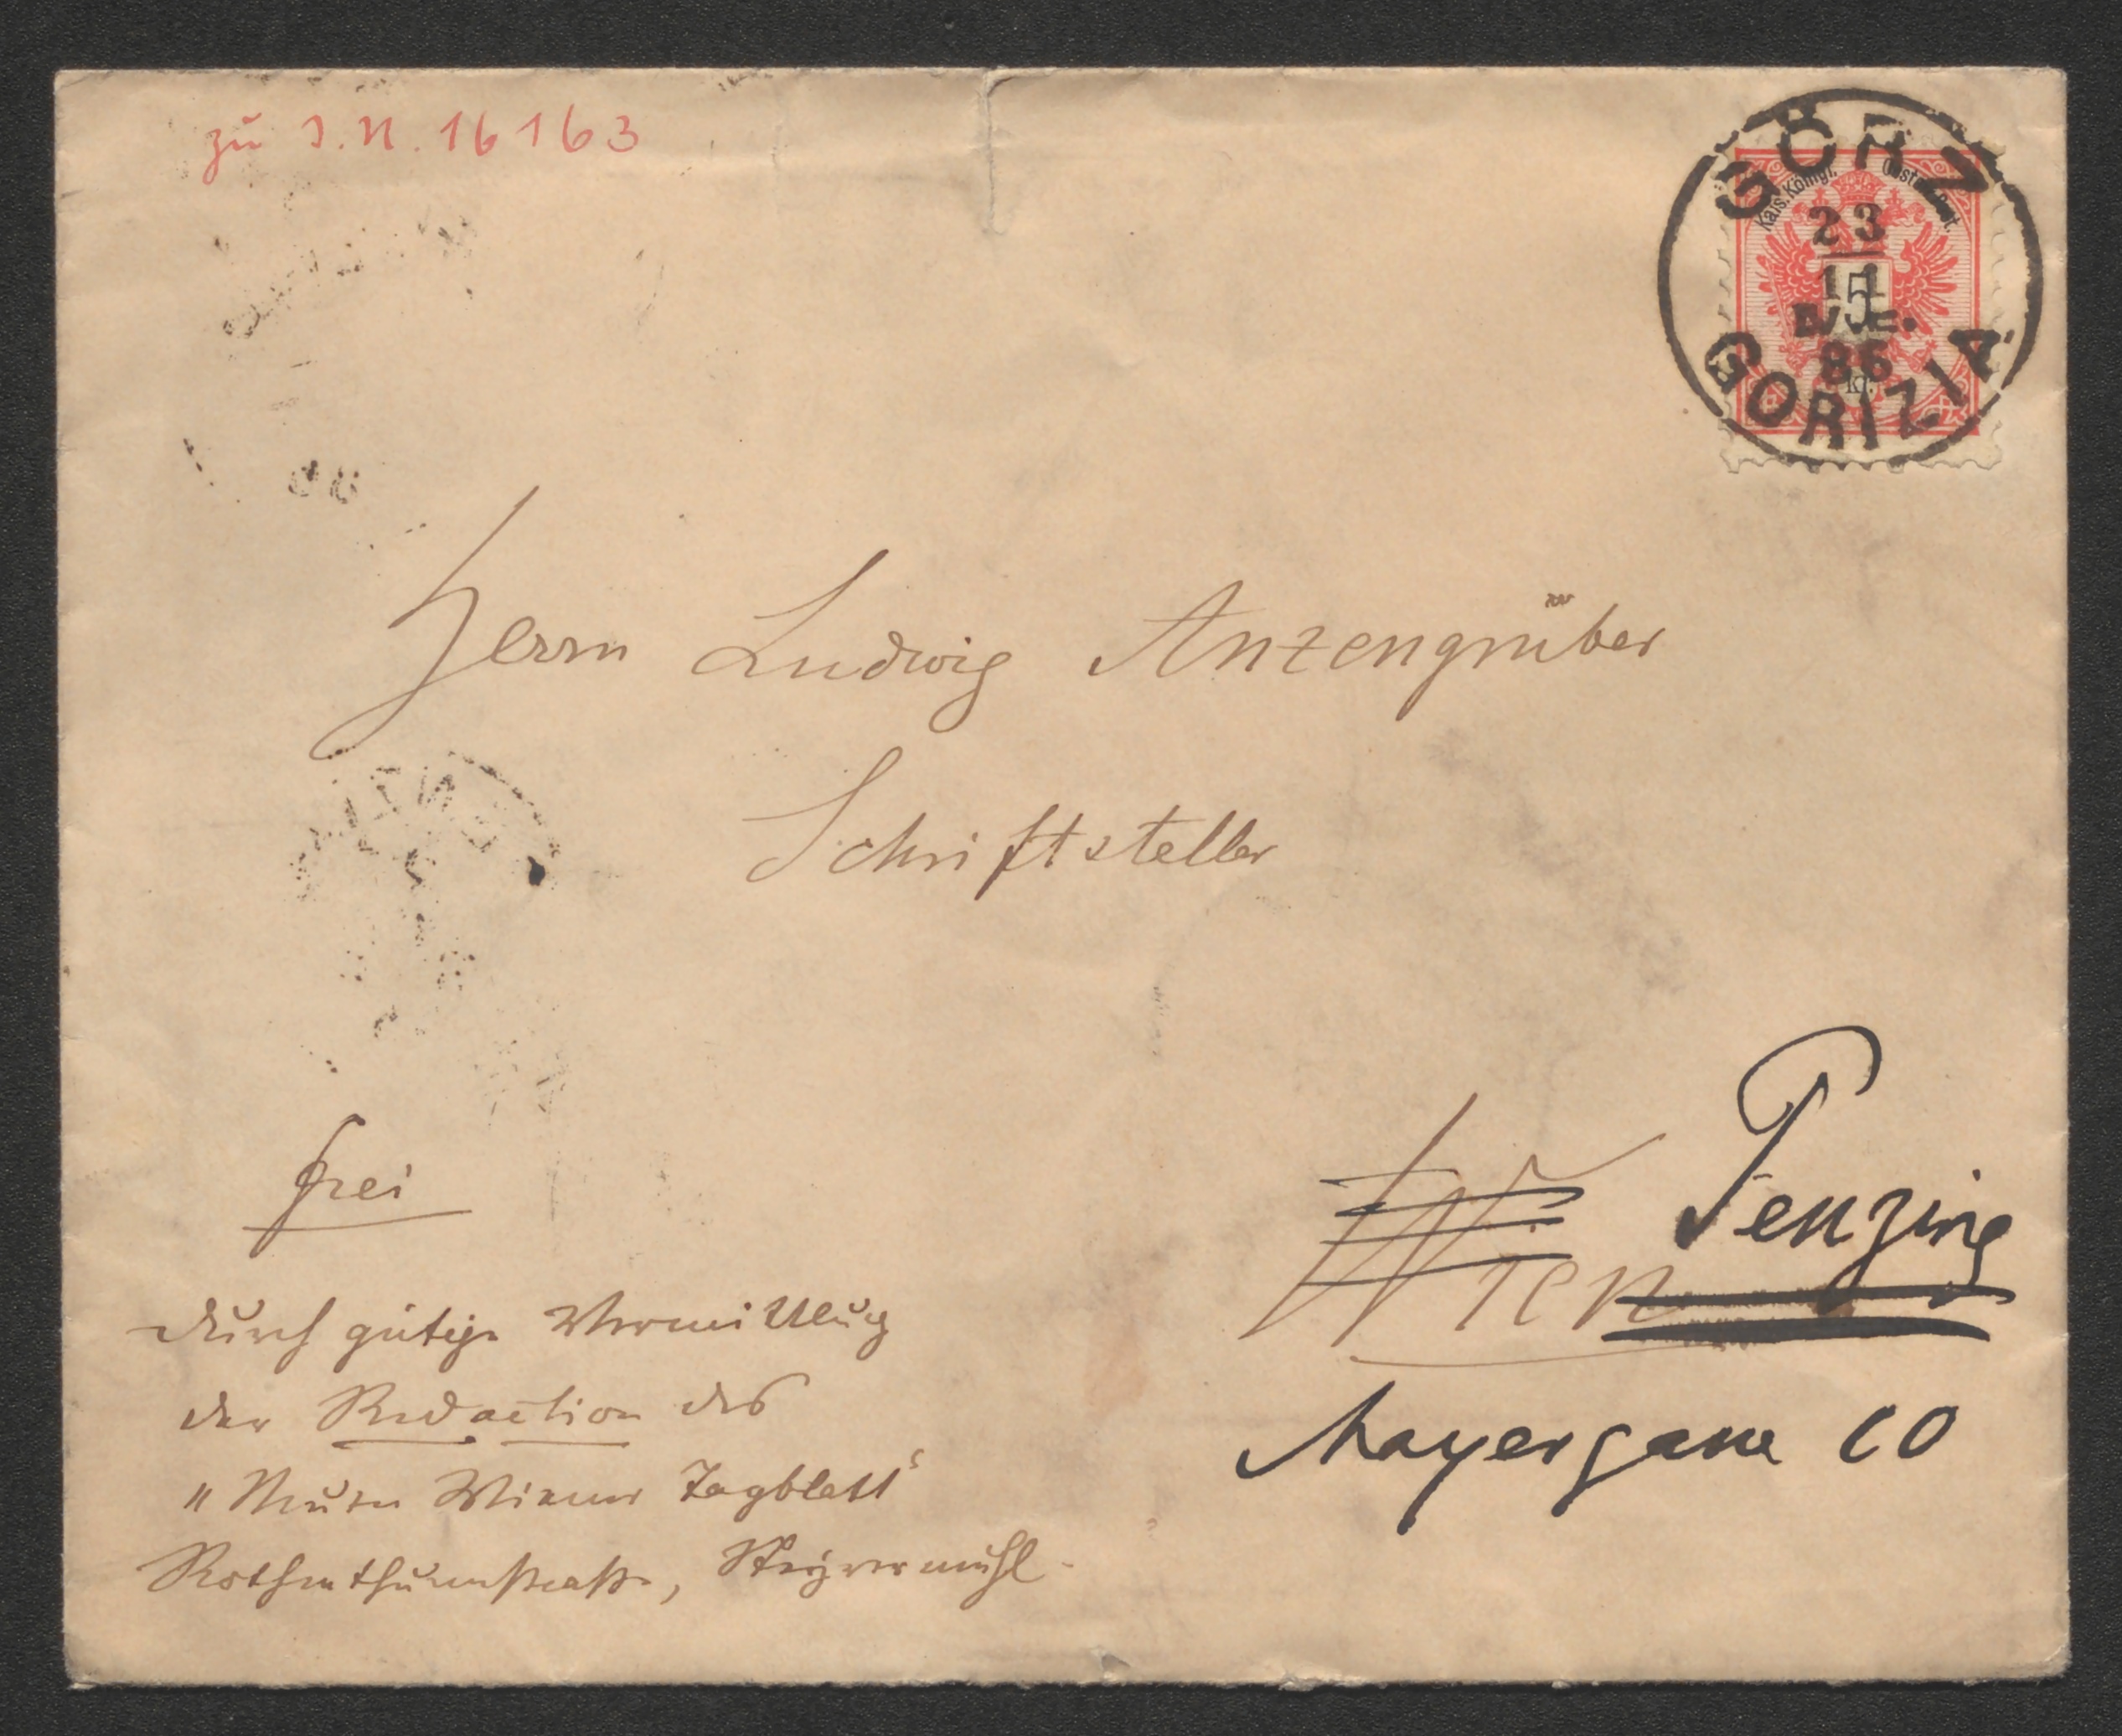 zu I.N. 16163
GÖRZ
Kais. Königl. Oest. Post.
23
11
5
86
kr.
GORIZIA
Herrn Ludwig Anzengruber
Schriftsteller
frei
Wien
Penzing
Mayergasse 10
durch gütige Vermittlung
der Redaction des
"Neuen Wiener Tagblatt"
Rothenthurmstraße, Steyrermühl